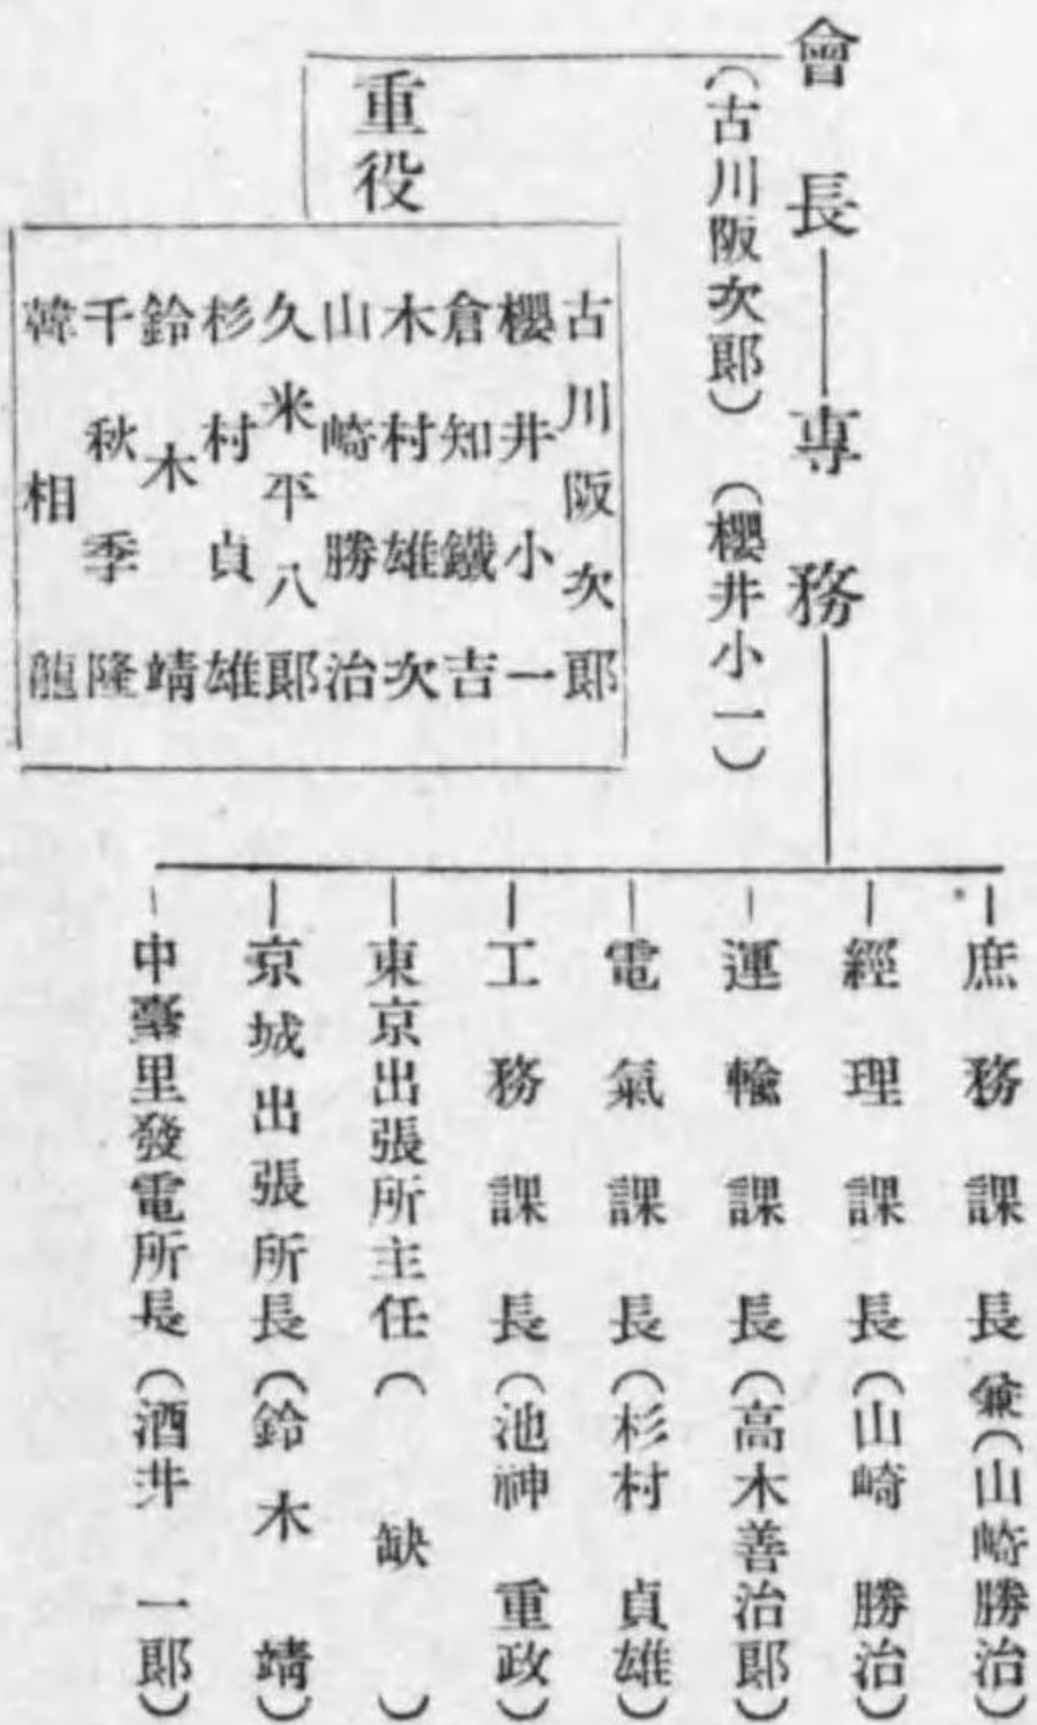 會長—專務
(古川阪次郞)(櫻井小一)
重役
古川阪次郞
櫻井小一
倉知鐵吉
木村雄次
山崎勝治
久米平八郞
杉村貞雄
鈴木靖
千秋季隆
韓相龍
庶務課長兼(山崎勝治)
經理課長(山崎勝治)
運輸課長(高木善治郞)
電氣課長(杉村貞雄)
工務課長(池神重政)
東京出張所主任(缺)
京城出張所長(鈴木靖)
中臺里發電所長(酒井一郞)